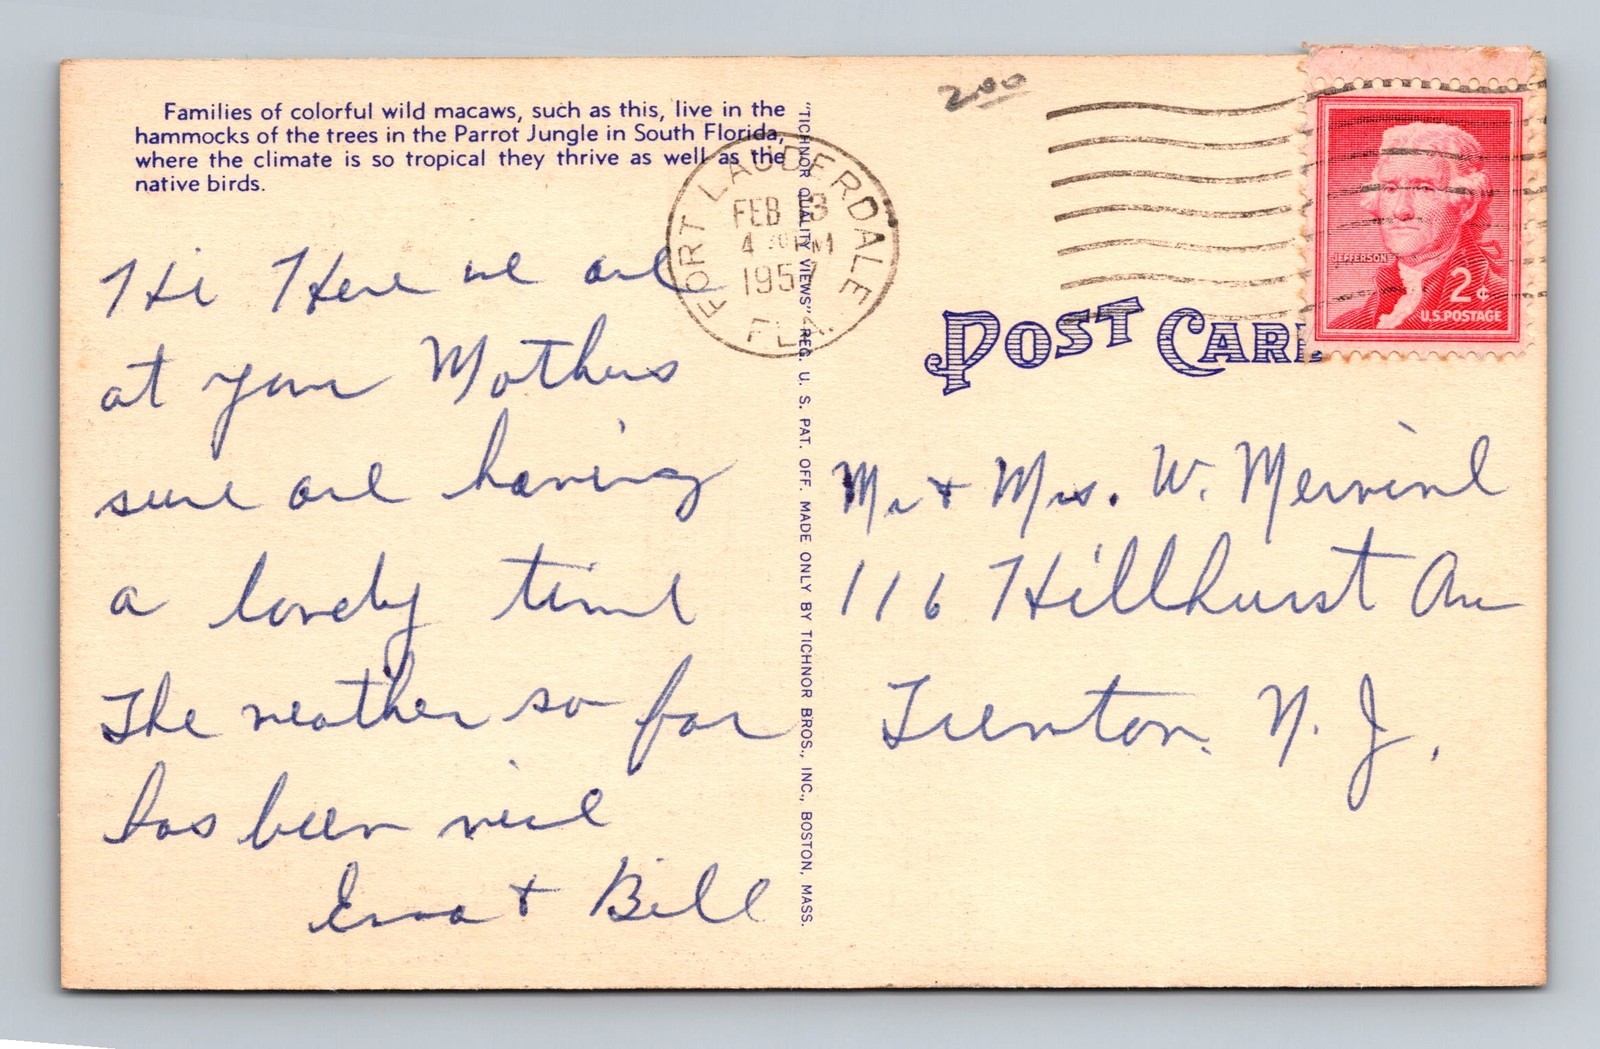 Families of colorful wild macaws, such as this, live in the
hammocks of the trees in the Parrot Jungle in South Florida,
where the climate is so tropical they thrive as well as the
native birds.
Hi Here we are
at your Mothers
sure are having
a lovely time
The weather so far
has been nice
Erna + Bill
"TICHNOR QUALITY VIEWS" REG. U. S. PAT. OFF. MADE ONLY BY TICHNOR BROS., INC., BOSTON, MASS.
FORT LAUDERDALE
FEB 13
4 PM
1957
FLA.
200
JEFFERSON
2¢
U.S. POSTAGE
POST CARD
Mr + Mrs. W.
116 Hillhurst Ave
Trenton. N. J.